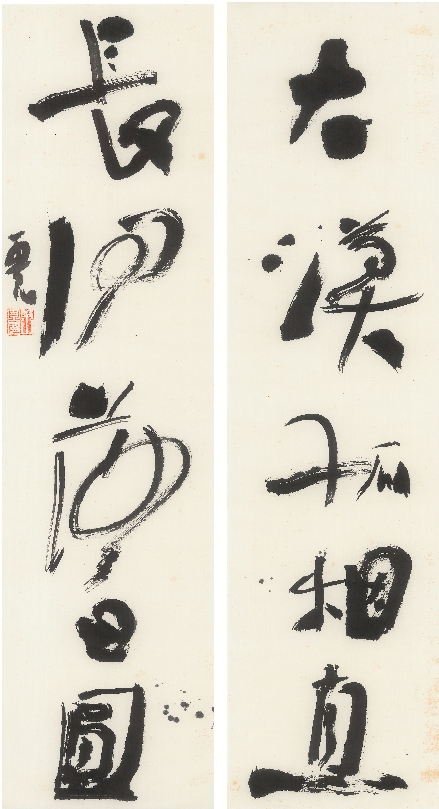 大漠孤烟直
長河落日圓